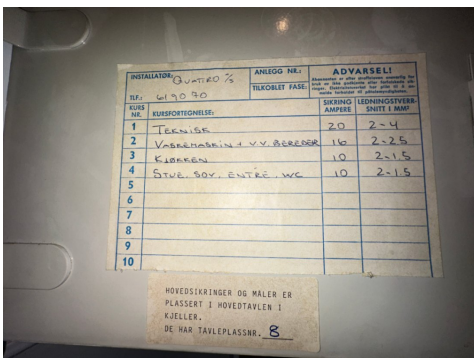 INSTALLATØR: QUATTRO A/S
ANLEGG NR.:
ADVARSEL!
TILKOBLET FASE:
TLF.: 619070
KURS NR.
KURSFORTEGNELSE:
SIKRING AMPERE
LEDNINGSTVERR- SNITT I MM²
1 TEKNISK 20 2-4
2 VASKEMASKIN + V.V. BEREDER 16 2-2.5
3 KJØKKEN 10 2-1.5
4 STUE, SOV, ENTRE, WC 10 2-1.5
5
6
7
8
9
10
HOVEDSIKRINGER OG MÅLER ER
PLASSERT I HOVEDTAVLEN I
KJELLER.
DE HAR TAVLEPLASSNR. 8